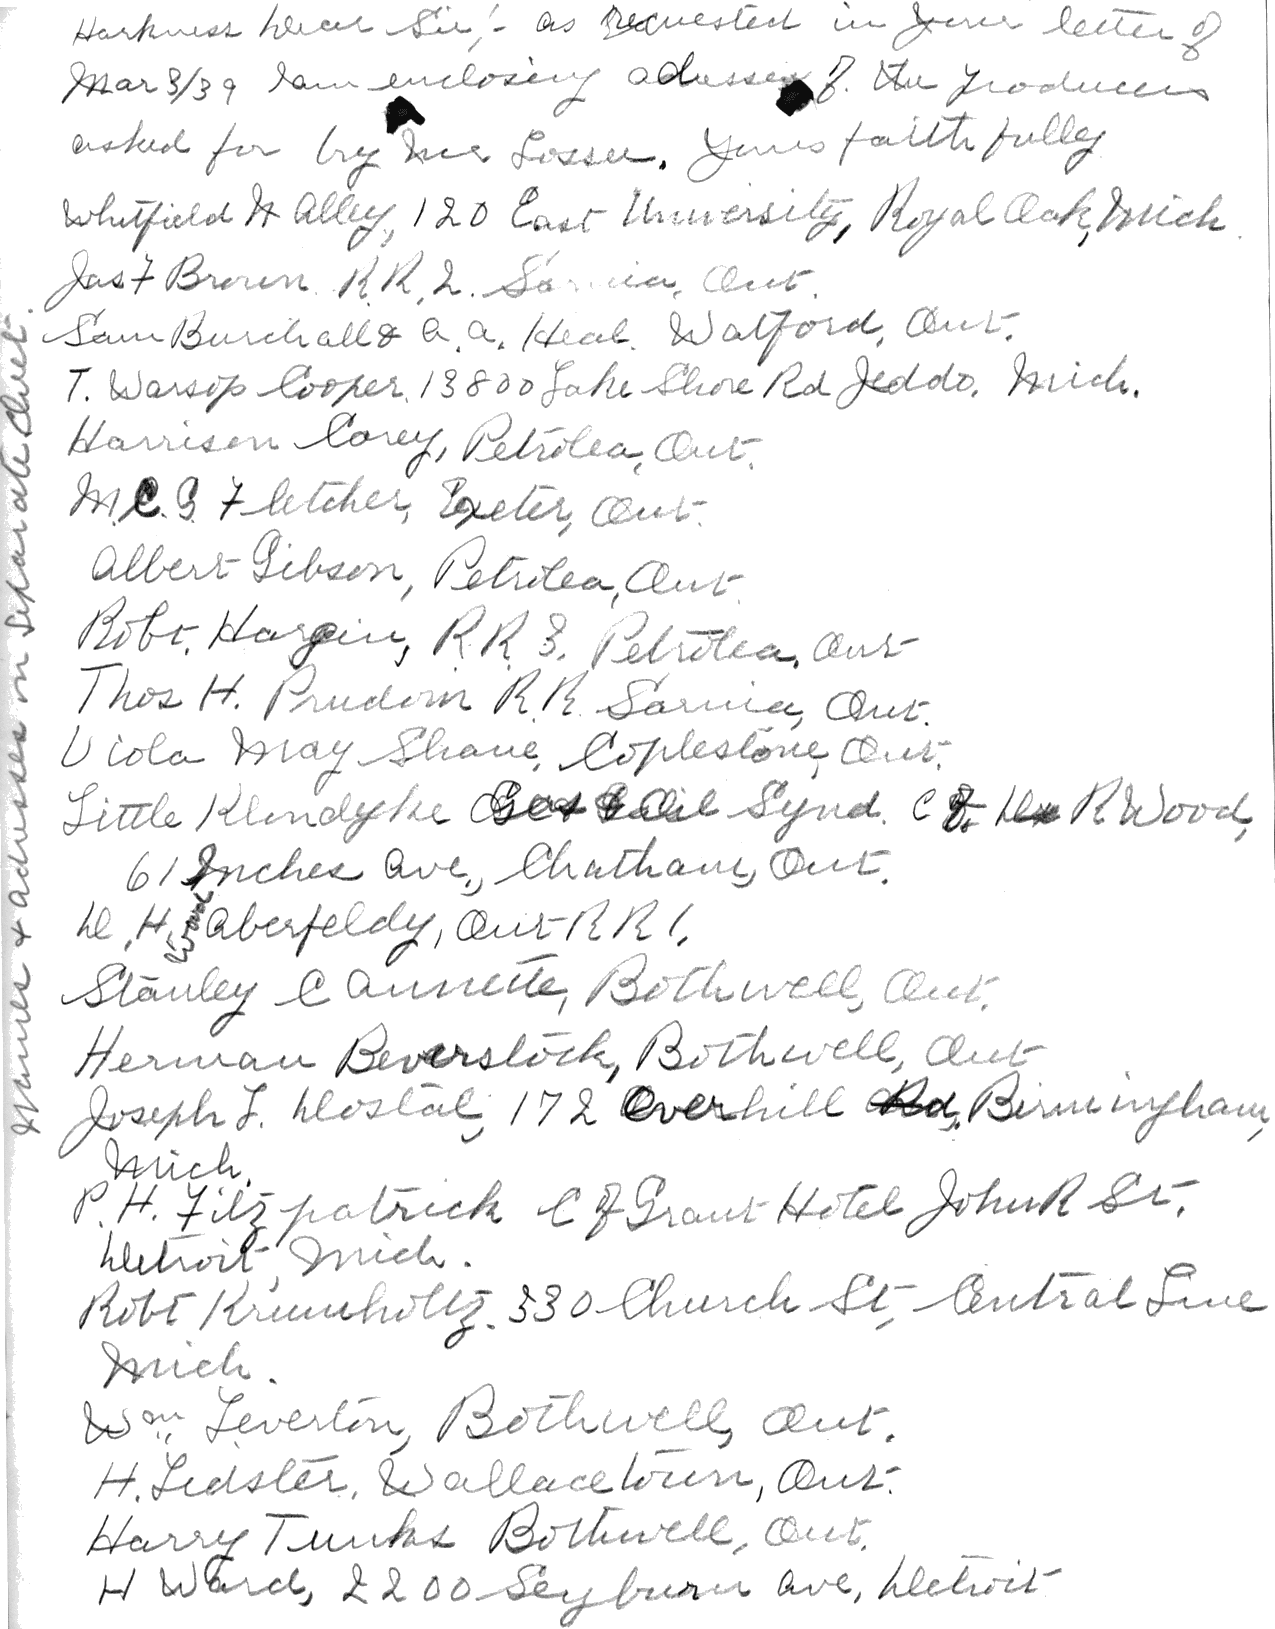 Harkness Dear Sir,- as requested in your letter of
Mar 3/39 I am enclosing adresses of. the producers
asked for by Mr Losser. Yours faithfully
Whitfield W Alley, 120 East University, Royal Oak, Mich.
Jas F Brown R.R. 2. Sarnia, Ont.
Sam Burchall & A. A. Heal. Watford, Ont.
T. Warsop Cooper. 13800 Lake Shore Rd Jeddo. Mich.
Harrison Corey, Petrolea, Ont.
M.C.G. Fletcher, Exeter, Ont.
Albert Gibson, Petrolea, Ont.
Robt. Hargin, R.R. 3. Petrolea, Ont
Thos H. Prudom R.R. Sarnia, Ont.
Viola May Shane, Coplestone, Ont.
Little Klondyke Gas & Oil Synd. C of. R Wood,
61 Inches Ave., Chatham, Ont.
D. H. Wood Aberfeldy, Ont R R 1.
Stanley C Annette, Bothwell, Ont.
Herman Beverstock, Bothwell, Ont
Joseph L. Dostal, 172 Overhill Rd, Birmingham,
Mich.
P. H. Fitzpatrick C of Grant Hotel John R St.
Detroit, Mich.
Robt Krumholtz. 330 Church St, Central Line
Mich.
Wm Leverton, Bothwell, Ont.
H. Lidster, Wallacetown, Ont.
Harry Tunks Bothwell, Ont.
H Ward, 2200 Seyburn Ave, Detroit
Names & adresses on separate sheet.